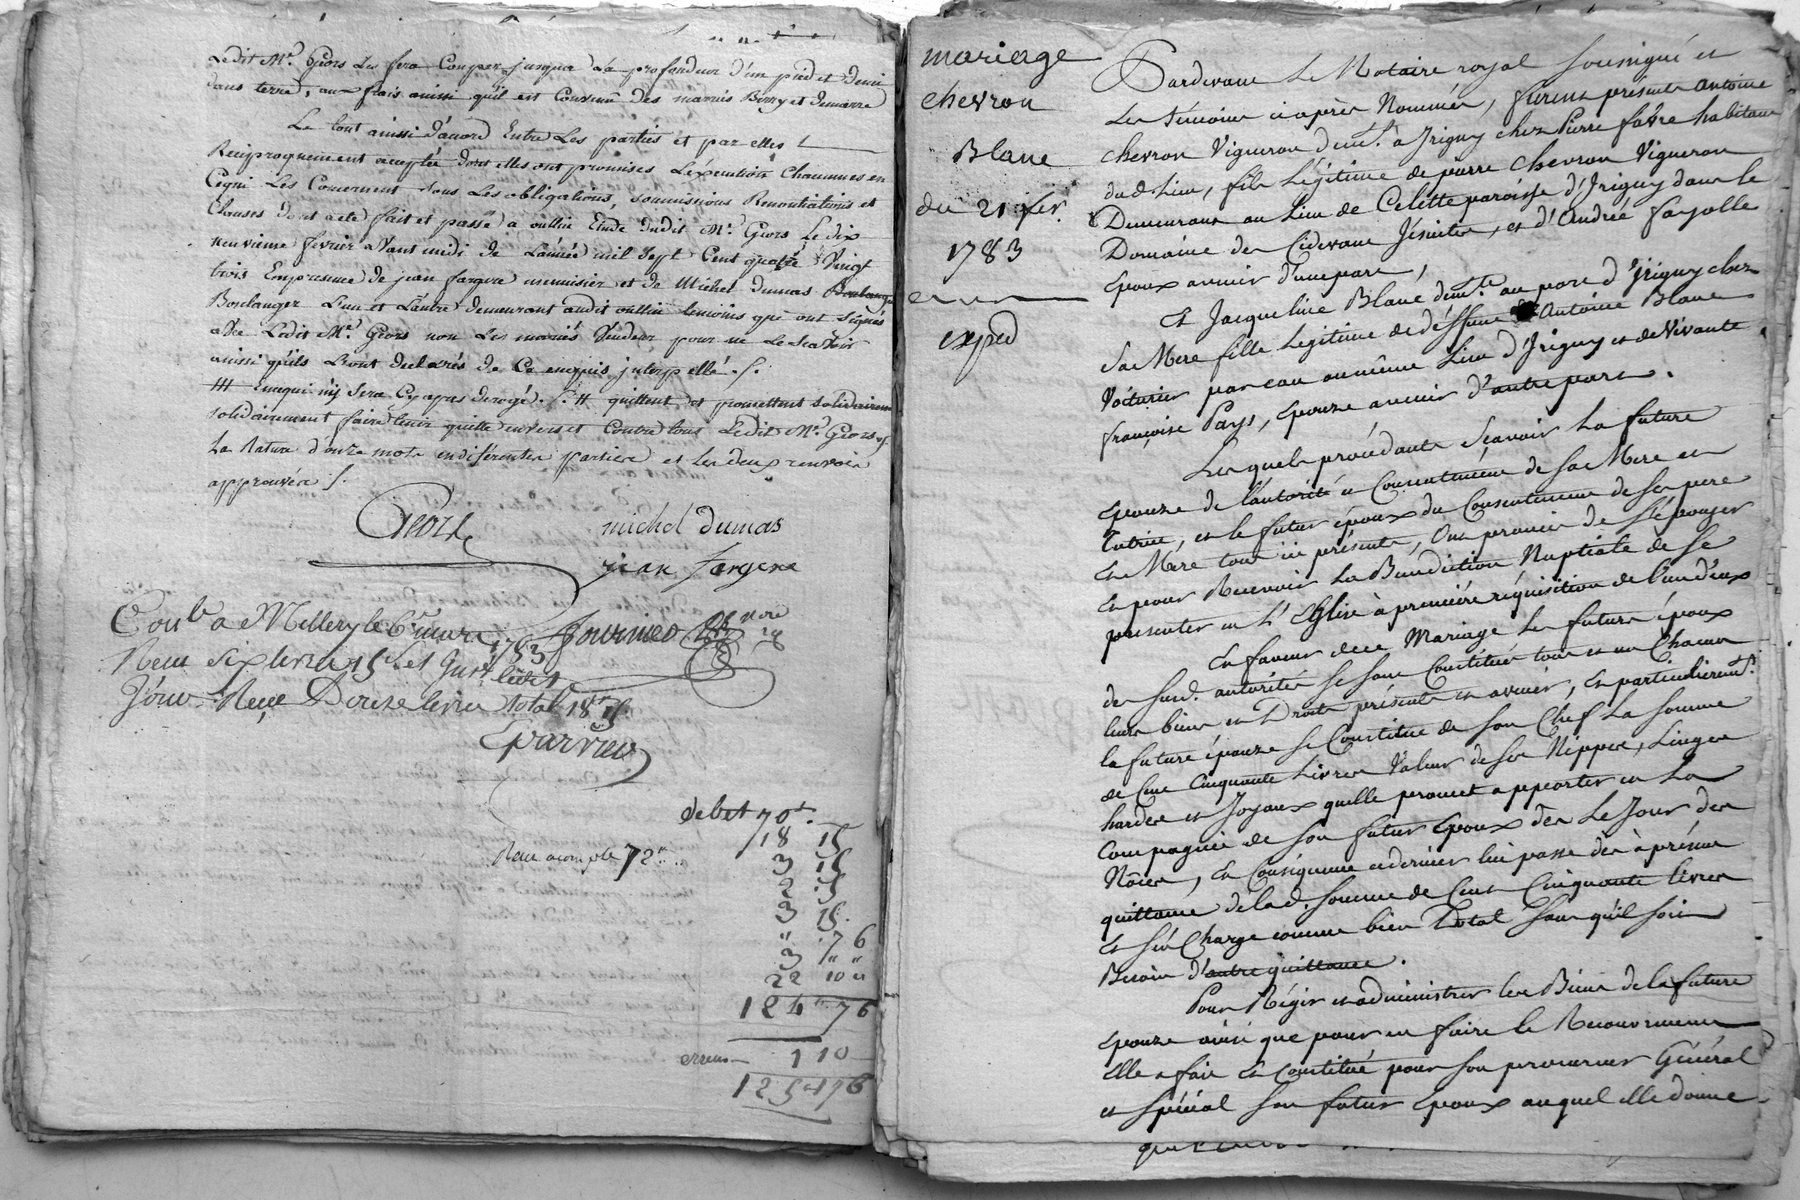 Ledit Mr. Geors Les fera Couper jusqua La profondeur d'un pied et demi
dans terre, aux frais ainsi qu'il est Convenu des mariés Borry et demarre
Le tout ainsi d'acord Entre Les parties et par elles
Reciproquement accepté dont elles ont promises L'éxecution Chaunnes en
Cequi Les Concernent sous Les obligations, soumissions Renontiations et
Clauses dont acte fait et passé a oullin Etude dudit Mr. Geors Le dix
neuvieme fevrier avant midi de L'année mil sept Cent quatre Vingt
trois Empresence de jean fargere menuisier et de Michel dumas
Boulanger L'un et L'autre demeurant audit oullin temoins qui ont Signés
avec Ledit Mr. Geors non Les mariés Vendeur pour ne Le scavoir
ainsi qu'ils L'ont declarés de Ce enquis jnterpellé ./.
quittent et promettent solidairem
solidairement faire tenir quitte envers et Contre tous Ledit Mr. Geors
La Rature d'onze mots en diférentes partiere et les deux renvois
approuvée ./.
Geors
michel dumas
jean fargere
Conlé a Millery le 6 mars 1783 fournier
Reçu six livres 15
Reçu Douze livres total 18 15
debet 70
18 15
Reçu acompte 72
3 15
2 15
3 15
" 7 6
3 " "
22 10 "
124 7 6
erreur 1 10
125 17 6
mariage
chevron
Blanc
du 21 fev.
1783
exped
Pardevant Le Notaire royal soussigné et
Les témoins ci après Nommés, furent présents antoine
chevron Vigneron demt. à Jrigny chez Pierre favre habitant
dud. Lieu, fils Légitime de pierre chevron Vigneron
Demeurant au Lieu de Celette paroisse d'Jrigny dans le
Domaine des Cidevant Jésuites, et d'Andrée fayolle
Epoux avenir d'une part,
Et Jacqueline Blanc demte. au port d'Jrigny chez
Sa Mere fille Légitime de déffunt Antoine Blanc
Voiturier par eau au même Lieu d'Jrigny et de Vivante
françoise Pays, Epouze avenir d'autre part.
Les quels procédants Sçavoir La future
Epouze de l'autorité et Consentement de sa Mere et
Tutrice, et le futur époux du Consentement de ses pere
Et Mere tous ici présents, Ont promis de s'épouzer
Et pour Recevoir La Benediction Nuptiale de se
présenter en L'Eglise à première réquisition de l'un d'eux
En faveur dece Mariage Les futurs époux
de susd. autorités se sont Constitué tous et un Chacun
leurs biens et Droits présents et avenir, Et particulieremt.
la future épouze se Constitue de son Chef La somme
de Cent Cinquante Livres Valeur de ses Nippes, Linges
hardes et Joyaux quelle promet apporter en La
Compagnie de son futur Epoux dès Le Jour des
Nôces, En Conséquence cedernier lui passe dès à présent
quittance delad. somme de Cent Cinquante livres
Et s'en Charge comme bien Dotal sans qu'il soit
Besoin d'autre quittance.
Pour Régir et administrer les Biens de la future
Epouze ainsi que pour en faire le Recouvrement
Elle a fait Et Constitué pour son procureur Général
et spécial son futur Epoux auquel elle donne